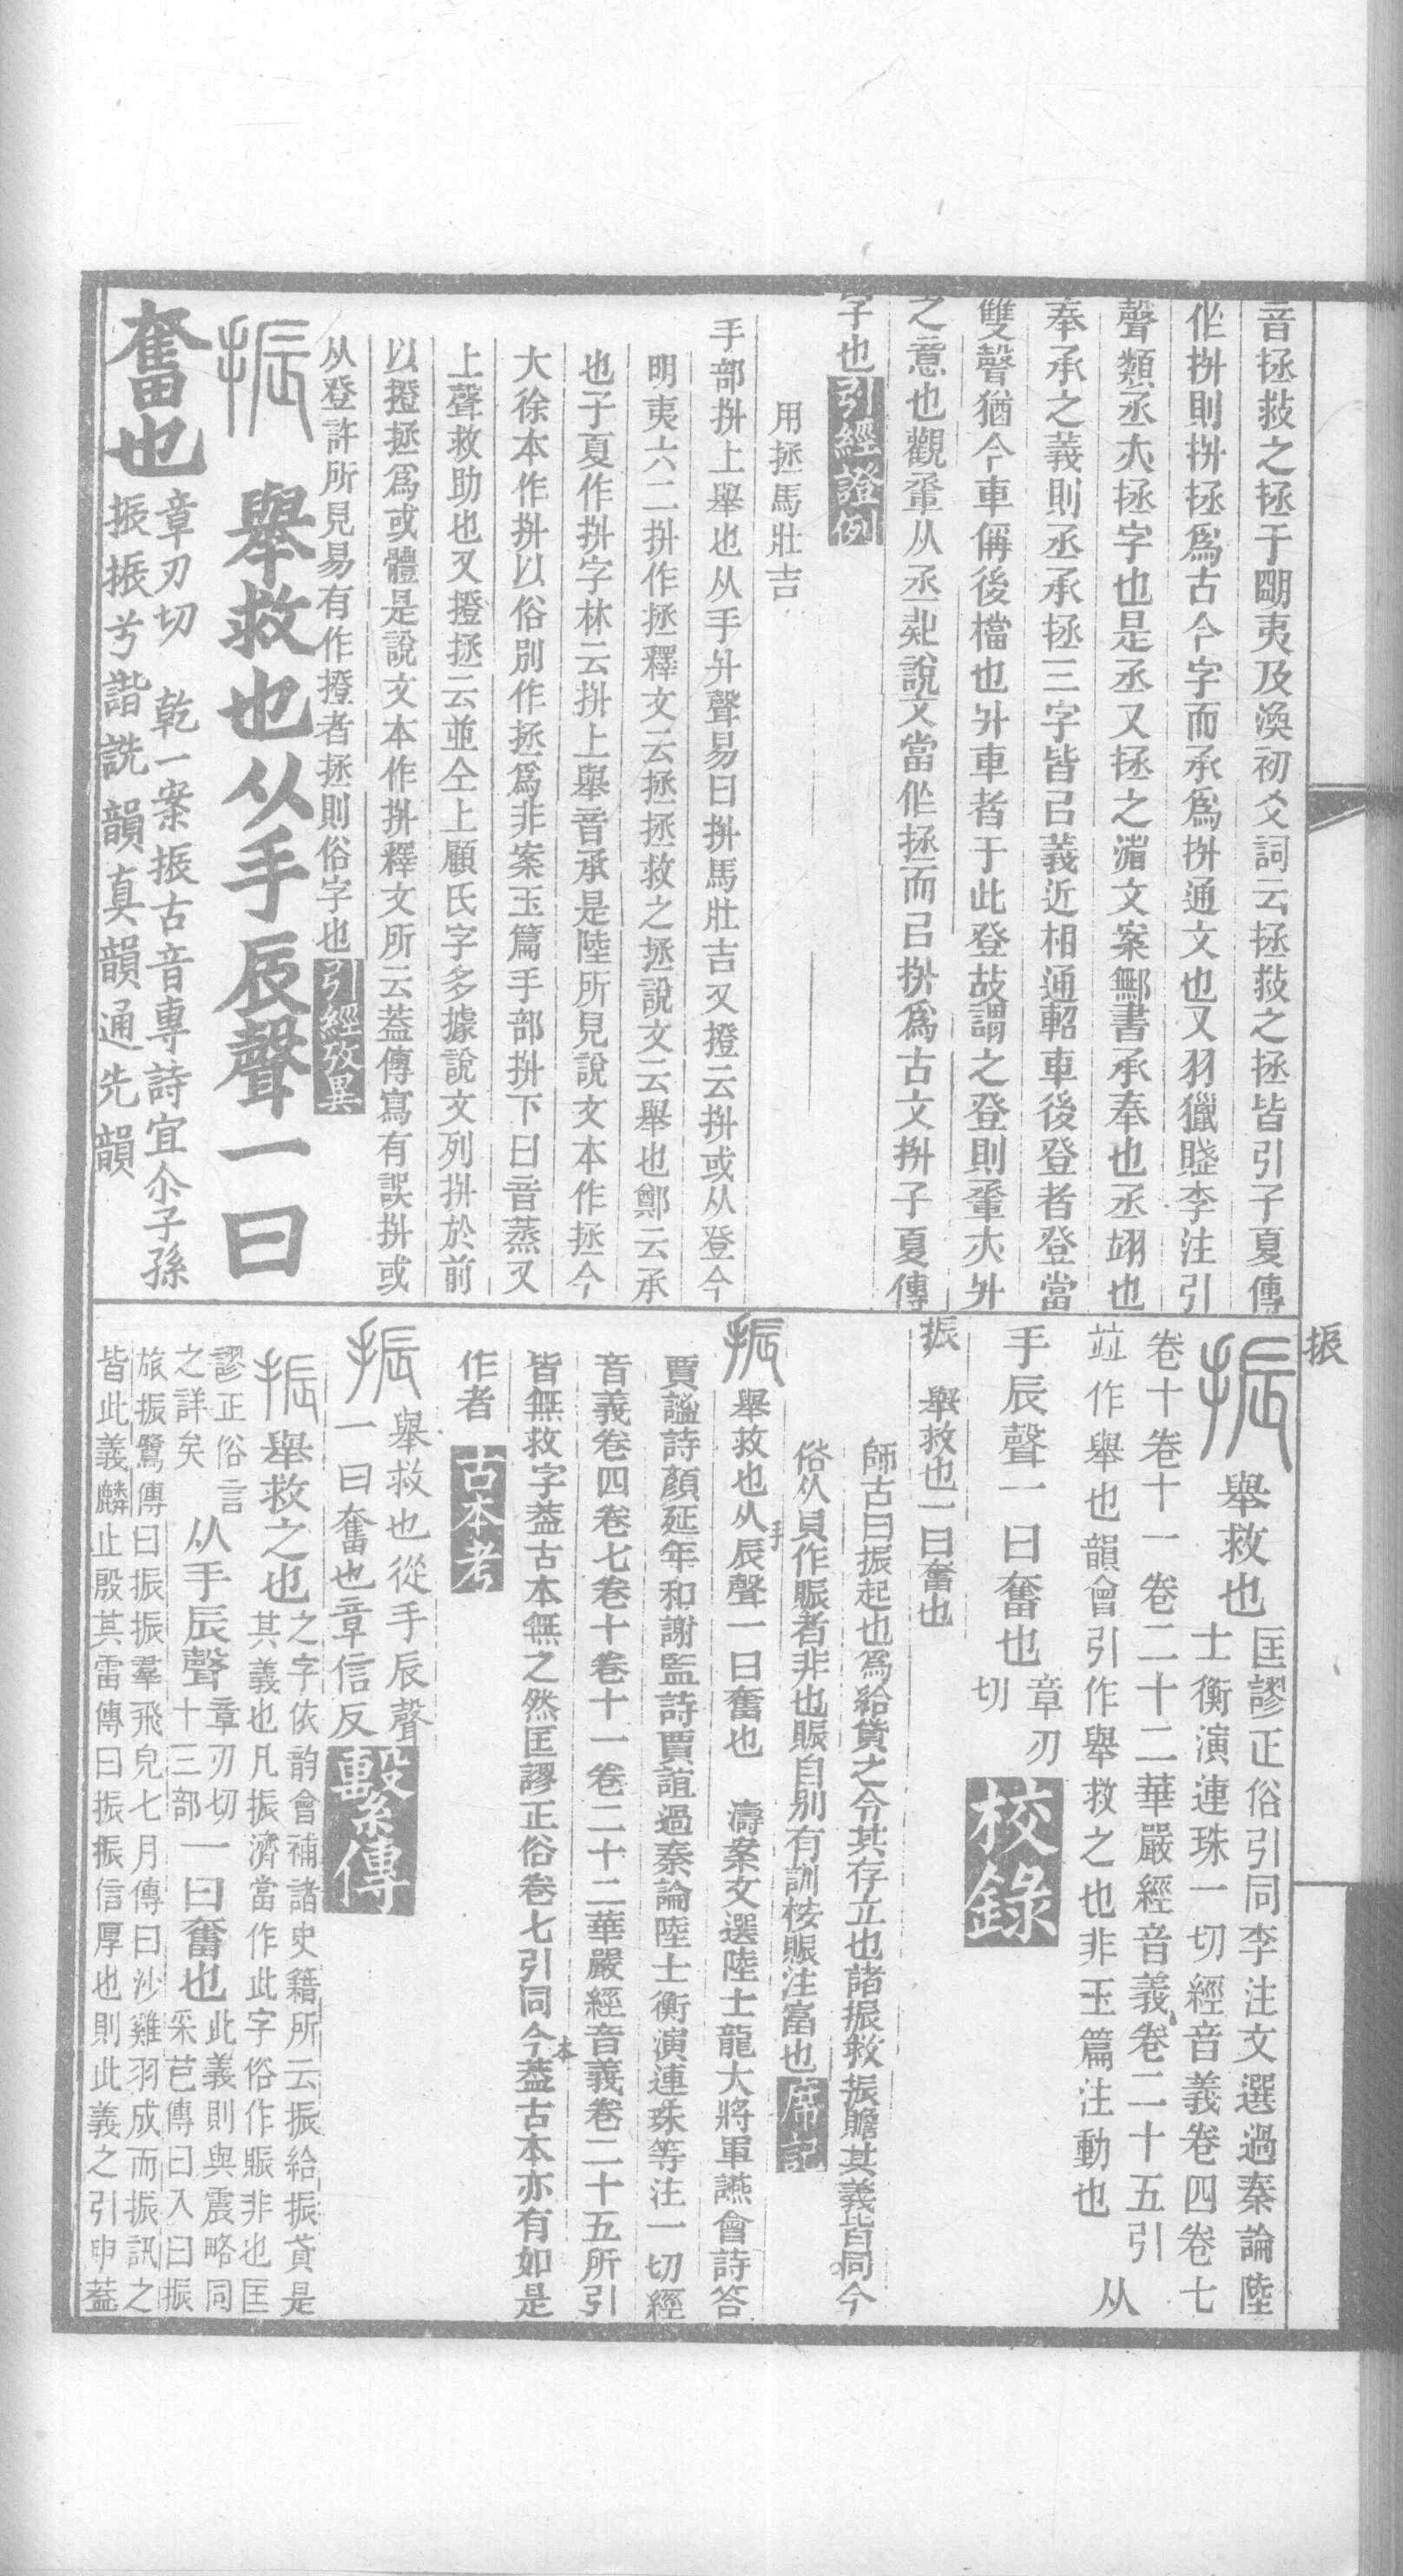 音拯救之拯于明夷及渙初爻詞云拯救之拯皆引子夏傳
作拼則拼拯爲古今字而承爲拼通文也又羽獵賦李注引
聲類丞亦拯字也是丞又拯之渻文案鄦書承奉也丞翊也
奉承之義則丞承拯三字皆㠯義近相通軺車後登者登當
雙聲猶今車偁後檔也升車者于此登故謂之登則輩亦升
之意也觀輩从丞㱃說文當作拯而㠯拼爲古文拼子夏傳
字也引經證例
用拯馬壯吉
手部拼上舉也从手升聲易曰拼馬壯吉又撜云拼或从登今
明夷六二拼作拯釋文云拯拯救之拯說文云舉也鄭云承
也子夏作拼字林云拼上舉音承是陸所見說文本作拯今
大徐本作拼以俗別作拯爲非案玉篇手部拼下曰音蒸又
上聲救助也又撜拯云並仝上顧氏字多據說文列拼於前
以撜拯爲或體是說文本作拼釋文所云葢傳寫有誤拼或
从登許所見易有作撜者拯則俗字也引經攷異
振 舉救也从手辰聲一曰
奮也 章刃切 乾一案振古音專詩宜尒子孫
振振兮諧詵韻真韻通先韻
振
振 舉救也 匡謬正俗引同李注文選過秦論陸
士衡演連珠一切經音義卷四卷七
卷十卷十一卷二十二華嚴經音義卷二十五引
竝作舉也韻會引作舉救之也非玉篇注動也 从
手辰聲一曰奮也 章刃
切 校錄
振 舉救也一曰奮也
師古曰振起也爲給貸之令其存立也諸振救振贍其義皆同今
俗从貝作賑者非也賑自別有訓桉賑注富也席記
振 舉救也从手辰聲一曰奮也 濤案文選陸士龍大將軍讌會詩答
賈謐詩顏延年和謝監詩賈誼過秦論陸士衡演連珠等注一切經
音義卷四卷七卷十卷十一卷二十二華嚴經音義卷二十五所引
皆無救字葢古本無之然匡謬正俗卷七引同今本葢古本亦有如是
作者 古本考
振 舉救也從手辰聲
一曰奮也章信反 繫傳
振 舉救之也 之字依韵會補諸史籍所云振給振貣是
其義也凡振濟當作此字俗作賑非也匡
謬正俗言
之詳矣 从手辰聲 章刃切
十三部 一曰奮也 此義則與震略同
采芑傳曰入曰振
旅振鷺傳曰振振羣飛皃七月傳曰沙雞羽成而振訊之
皆此義麟止殷其雷傳曰振振信厚也則此義之引申葢